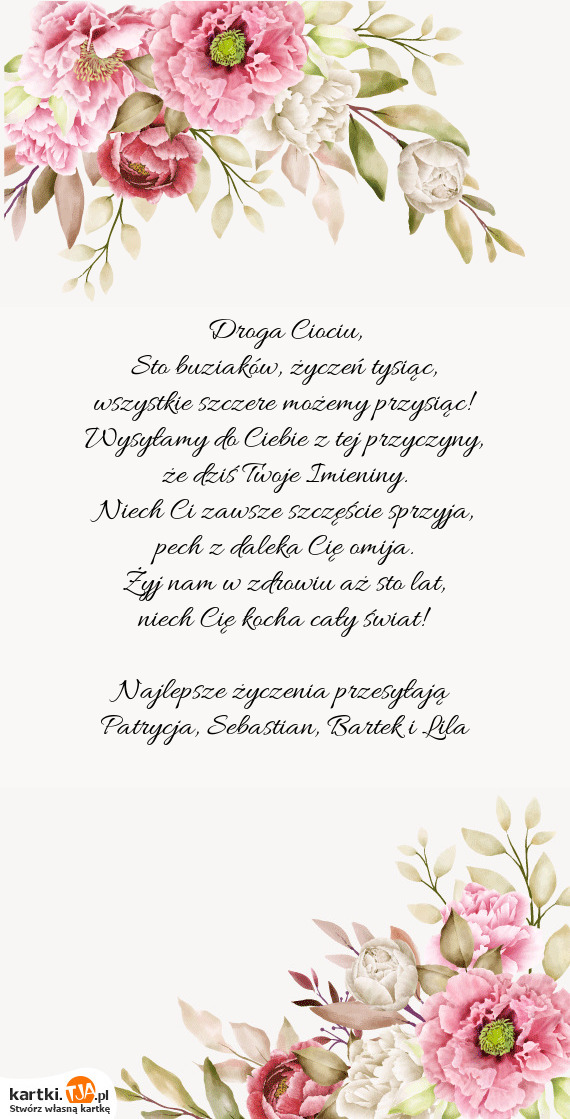 Droga Ciociu,
Sto buziaków, życzeń tysiąc,
wszystkie szczere możemy przysiąc!
Wysyłamy do Ciebie z tej przyczyny,
że dziś Twoje Imieniny.
Niech Ci zawsze szczęście sprzyja,
pech z daleka Cię omija.
Żyj nam w zdrowiu aż sto lat,
niech Cię kocha cały świat!
Najlepsze życzenia przesyłają
Patrycja, Sebastian, Bartek i Lila
kartki.TJA.pl
Stwórz własną kartkę